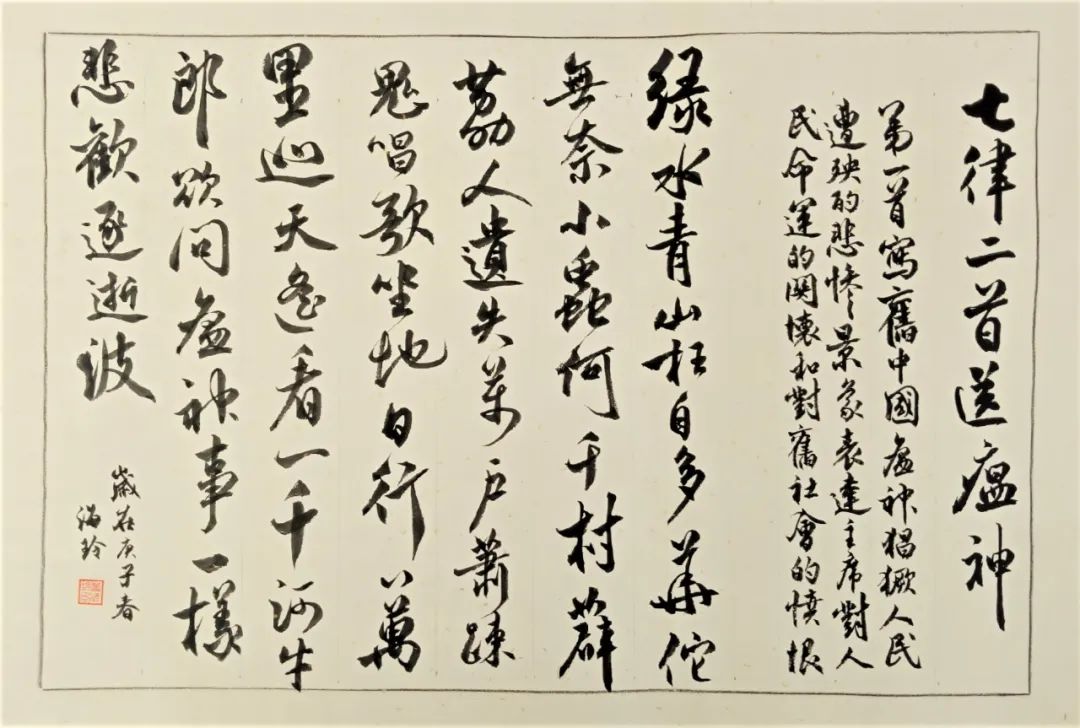 七律二首送瘟神
第一首寫舊中國瘟神猖獗人民
遭殃的悲慘景象表達主席對人
民命運的關懷和對舊社會的憤恨
綠水青山枉自多華佗
無奈小蟲何千村薜
荔人遺失萬戶蕭疏
鬼唱歌坐地日行八萬
里巡天遙看一千河牛
郎欲問瘟神事一樣
悲歡逐逝波
歲在庚子春